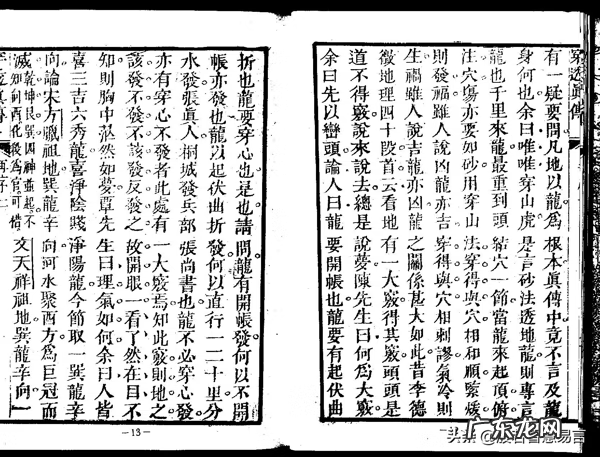 穿透眞傳
有一疑要問凡地以龍爲根本眞傳中竟不言及龍
身何也余曰唯唯穿山虎是言砂法透地龍則專言
龍也千里來龍最重到頭結穴一節當龍來起頂俯
注穴塲亦要如砂用穿山法穿得與穴相和順緊煖
則發福雖人說凶龍亦吉穿得與穴相剌謬氣冷則
生禍雖人說吉龍亦凶龍之關係甚大如此昔李德
徵地理四十段首云看地有一大竅得其竅頭頭是
道不得竅說來說去總是說夢陳先生曰何爲大竅
余曰先以巒頭論人曰龍要開帳也龍要有起伏曲
折也龍要穿心也是也請問龍有開帳發何以不開
帳亦發也龍以起伏曲折發何以直行一二十里分
水發張眞人桐城發兵部張尚書也龍不必穿心發
亦有穿心不發者此處有一大竅焉知此竅則地之
該發不發不該發反發之故開眼一看了然在目不
知則胸中茫然如夢覃先生曰理氣如何余曰人皆
喜三吉六秀龍喜淨陰賤淨陽龍今節取一巽龍辛
向論宋方臘祖地巽龍辛向河水聚西方爲巨冠而
滅乾坤艮巽四神並起不知何酉化後爲官可借文天祥祖地巽龍辛向一
再序 二
—13—
头条
广东龙网